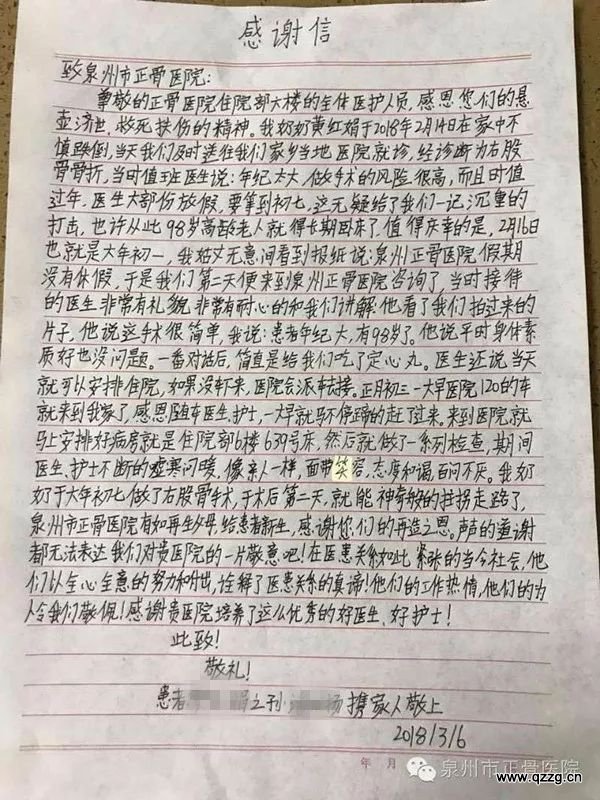 感谢信
致泉州市正骨医院：
尊敬的正骨医院住院部六楼的全体医护人员，感恩您们的悬
壶济世，救死扶伤的精神。我奶奶黄红娟于2018年2月14日在家中不
慎跌倒，当天我们及时送往我们家乡当地医院就诊，经诊断为右股
骨骨折，当时值班医生说：年纪太大，做手术的风险很高，而且时值
过年，医生大部份放假，要等到初七，这无疑给了我们一记沉重的
打击，也许从此98岁高龄老人就得长期卧床了，值得庆幸的是，2月16日
也就是大年初一，我姑丈无意间看到报纸说：泉州正骨医院假期
没有休假，于是我们第二天便来到泉州正骨医院咨询了，当时接待
的医生非常有礼貌，非常有耐心的和我们讲解，他看了我们拍过来的
片子，他说这手术很简单，我说：患者年纪大，有98岁了。他说平时身体素
质好也没问题。一番对话后，简直是给我们吃了定心丸。医生还说当天
就可以安排住院，如果没车来，医院会派车去接。正月初三一大早医院120的车
就来到我家了，感恩随车医生，护士，一早就马不停蹄的赶了过来。来到医院就
马上安排好病房就是住院部6楼639号床，然后就做了一系列检查，期间
医生、护士不断的嘘寒问暖，像亲人一样，面带笑容，态度和谒，百问不厌。我奶
奶于大年初七做了右股骨手术，手术后第二天，就能神奇般的拄拐走路了，
泉州市正骨医院有如再生父母，给患者新生，感谢您们的再造之恩。声声的道谢
都无法表达我们对贵医院的一片敬意吧！在医患关系如此紧张的当今社会，他
们以全心全意的努力和付出，诠释了医患关系的真谛！他们的工作热情，他们的为
人令我们敬佩！感谢贵医院培养了这么优秀的好医生、好护士！
此致！
敬礼！
患者 娟之孙 杨携家人敬上
2018/3/6
年 月
泉州市正骨医院
www.qzzg.cn